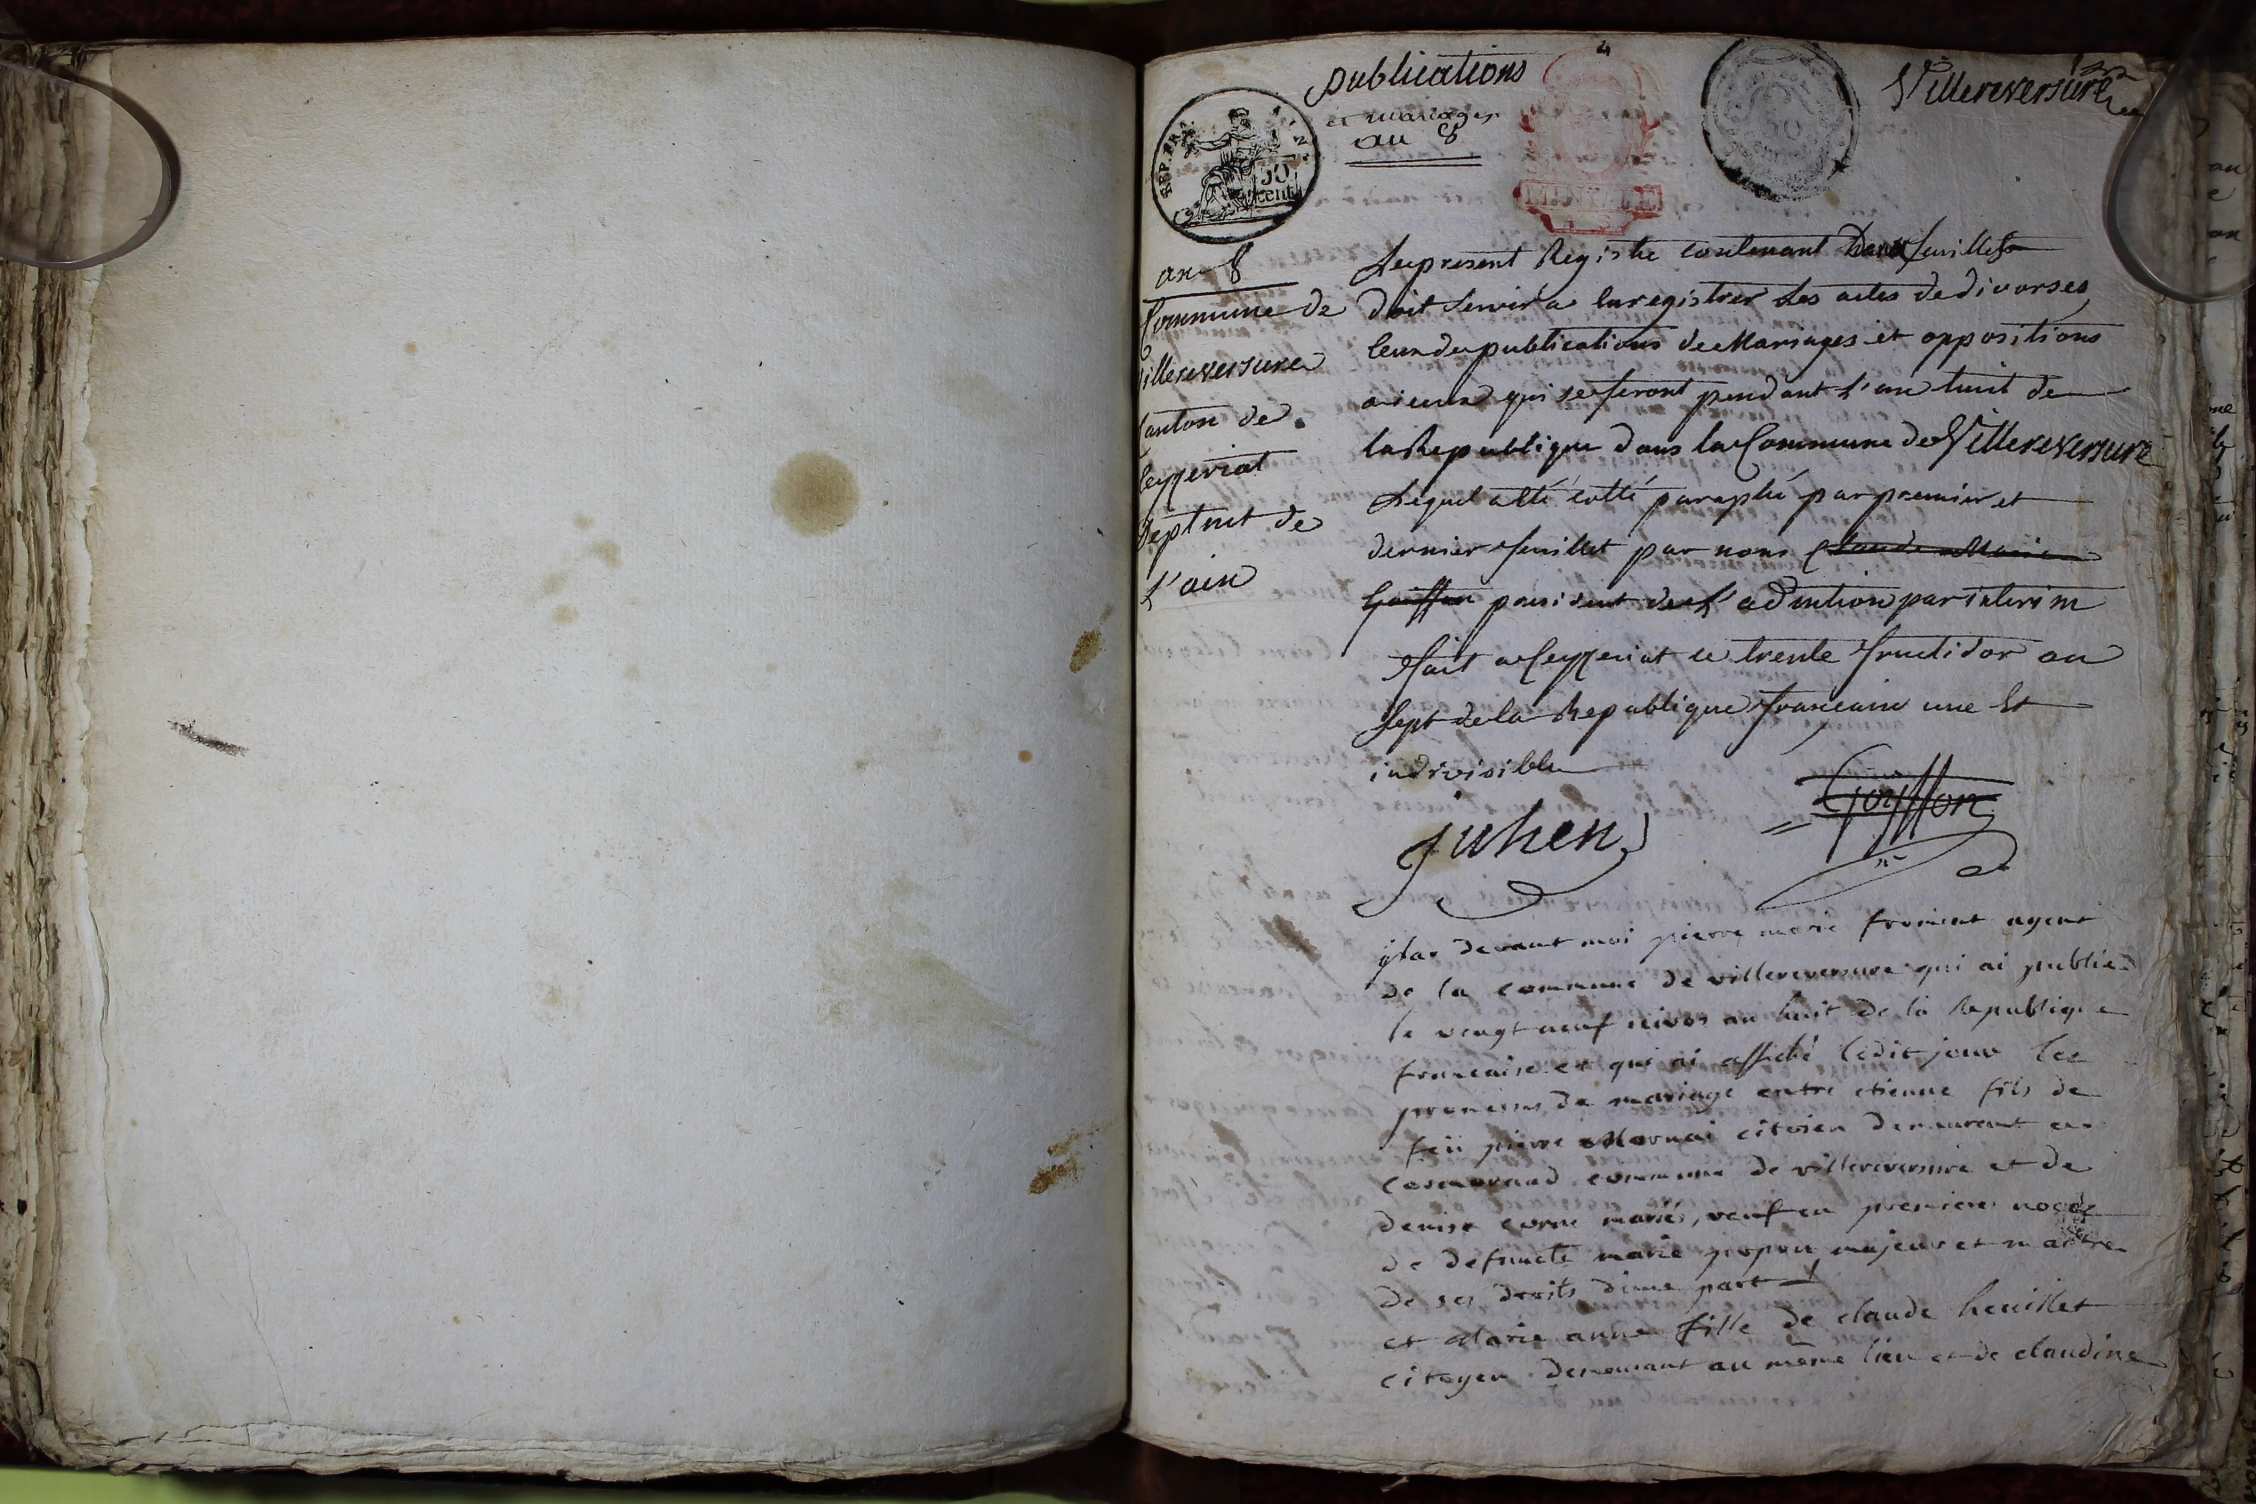 publications
et mariages
an 8
Villereversure
REP. FRA.
50
cent.
an 8
Commune de
Villereversure
Canton de
Ceyzeriat
Deptmt de
L'ain
Le present Registre contenant Deux feuillets
doit servir a Enregistrer Les actes de divorses
ceux de publications de Mariages et oppositions
a iceux qui se feront pendant L'an huit de
la Republique dans la Commune de Villereversure
Lequel a été cotté paraphé par premier et
dernier feuillet par nous Claude Marie
Goiffon president de L'admtion par interim
Fait a Ceyzeriat ce trente fructidor an
Sept de la Republique francaise une Et
indivisible
Juhen
Goiffon
par devant moi pierre marie froment agent
de la commune de villereversure qui ai publié
le vengt neuf nivos an huit de la Republique
francaise et qui ai affiché ledit jour les
promesses de mariage entre etienne fils de
feü pierre Mornai citoien demeurant en
commune de villereversure et de
denise corne mariés, veuf en premiere noces
de defuncte marie majeur et maitre
de ses droits d'une part
et Marie anne fille de claude heuillet
citoyen demeurant au même lieu et de claudine